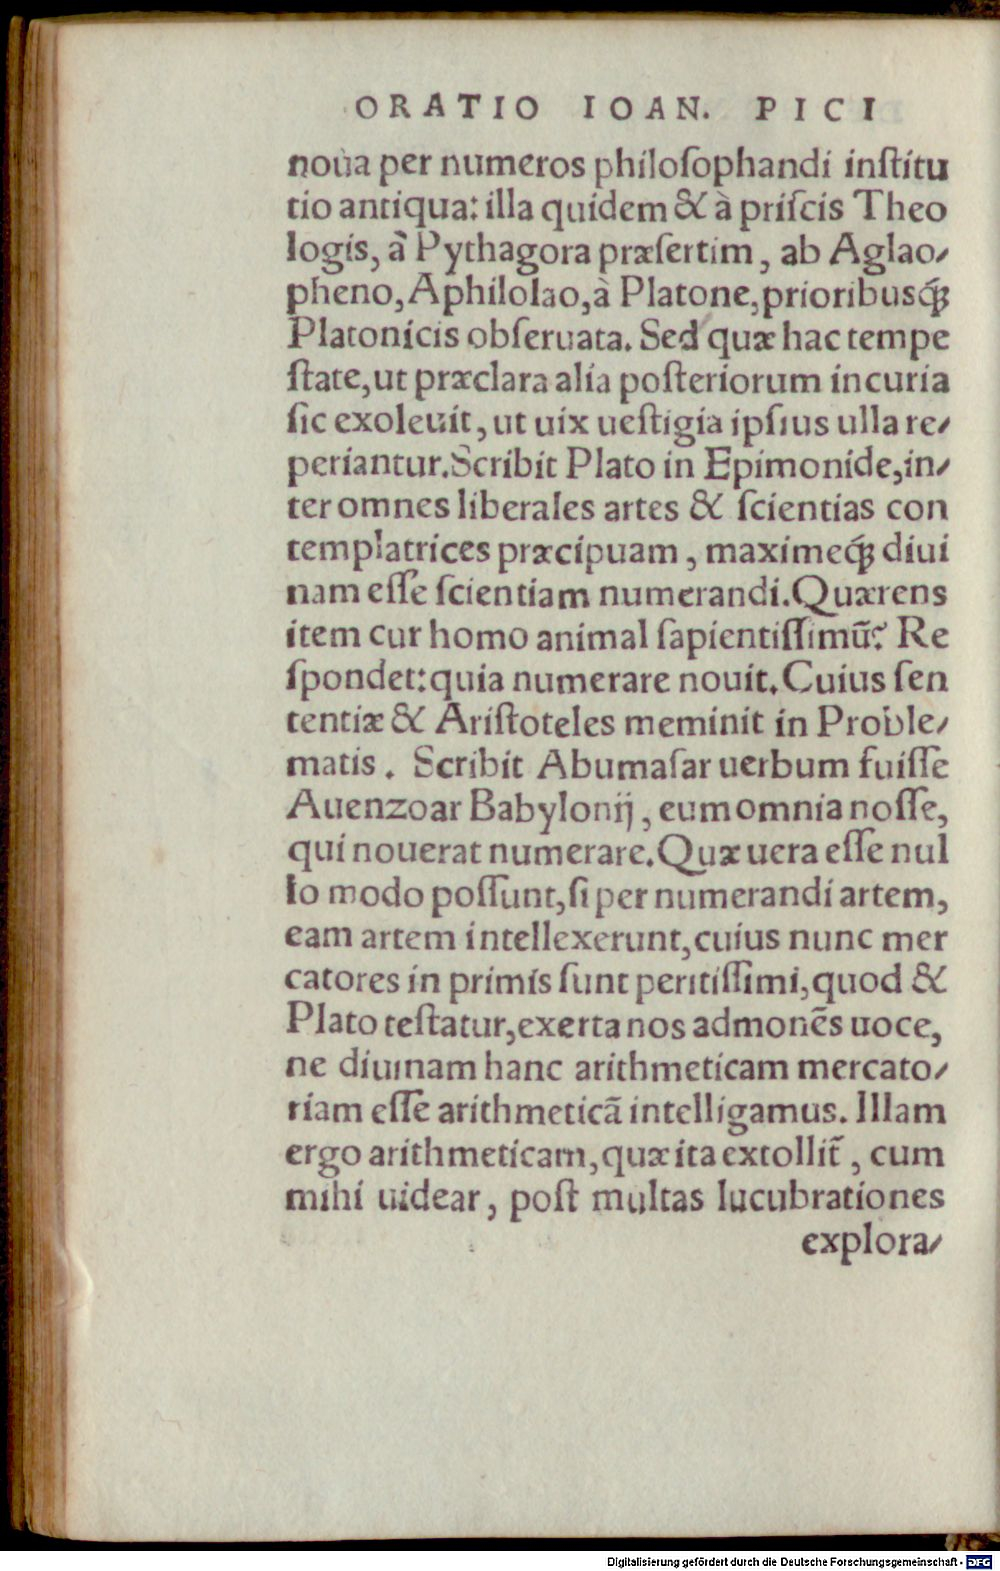 ORATIO IOAN. PICI
noua per numeros philoſophandi inſtitu
tio antiqua: illa quidem & à priſcis Theo
logis, à Pythagora præſertim, ab Aglao/
pheno, Aphilolao, à Platone, prioribusq́ꝫ
Platonicis obſeruata. Sed quæ hac tempe
ſtate, ut præclara alia poſteriorum incuria
ſic exoleuit, ut uix ueſtigia ipſius ulla re/
periantur. Scribit Plato in Epimonide, in/
ter omnes liberales artes & ſcientias con
templatrices præcipuam, maximeq́ꝫ diui
nam eſſe ſcientiam numerandi. Quærens
item cur homo animal ſapientiſſimū? Re
ſpondet: quia numerare nouit. Cuius ſen
tentiæ & Ariſtoteles meminit in Proble/
matis. Scribit Abumaſar uerbum fuiſſe
Auenzoar Babylonij, eum omnia noſſe,
qui nouerat numerare. Quæ uera eſſe nul
lo modo poſſunt, ſi per numerandi artem,
eam artem intellexerunt, cuius nunc mer
catores in primis ſunt peritiſſimi, quod &
Plato teſtatur, exerta nos admonēs uoce,
ne diuinam hanc arithmeticam mercato/
riam eſſe arithmeticā intelligamus. Illam
ergo arithmeticam, quæ ita extollit̃, cum
mihi uidear, poſt multas lucubrationes
explora/
Digitalisierung gefördert durch die Deutsche Forschungsgemeinschaft - DFG